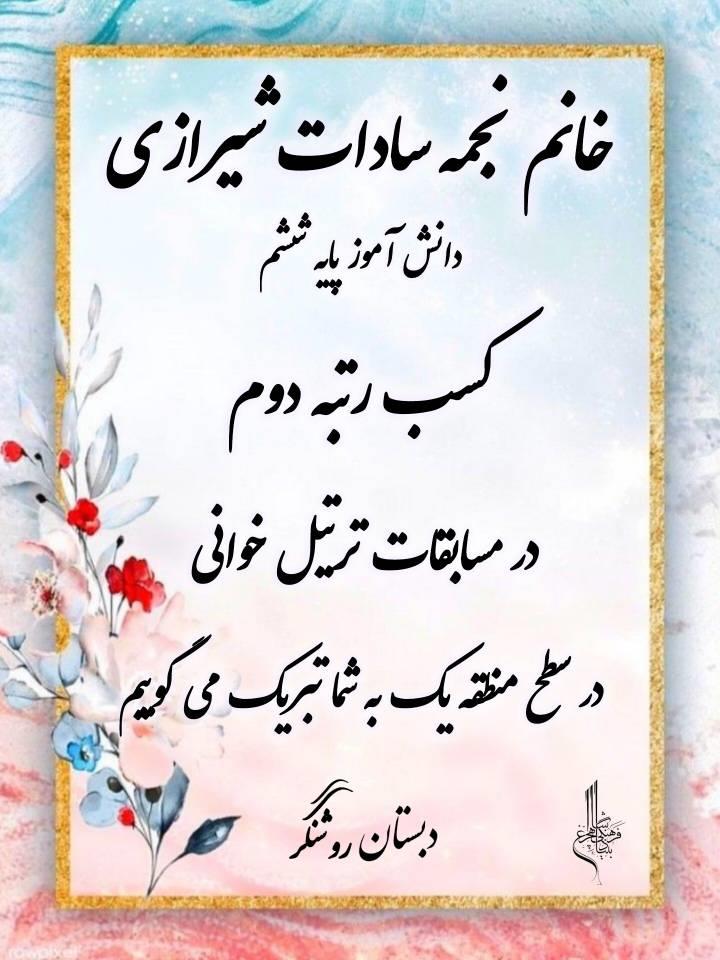 خانم نجمه سادات شیرازی
دانش آموز پایه ششم
کسب رتبه دوم
در مسابقات ترتیل خوانی
در سطح منطقه یک به شما تبریک می گوییم
دبستان روشنگر
rawpixel